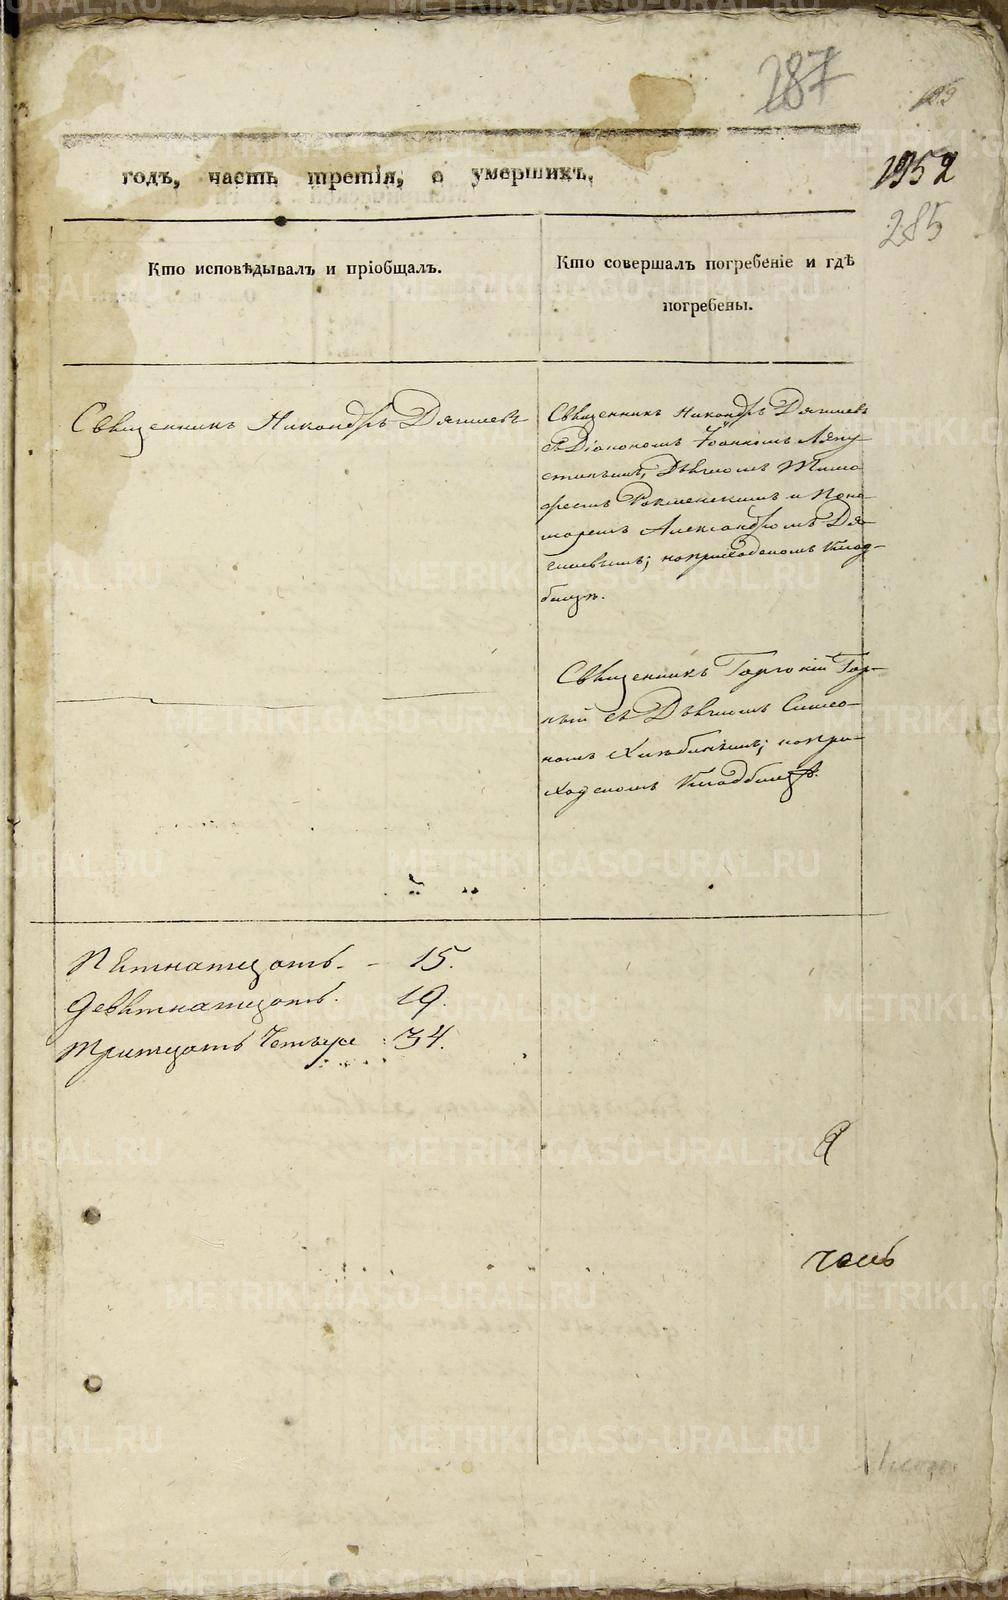 287
1952
285
годъ, часть третія, о умершихъ.
Кто исповѣдывалъ и пріобщалъ.
Кто совершалъ погребеніе и гдѣ
погребены.
Священникъ Никандръ Дягилевъ
Священникъ Никандръ Дягилевъ
съ Діакономъ Іоанномъ Ляпу-
стинымъ, Дьячкомъ Тимо
феемъ и Поно-
маремъ Александромъ Дя-
гилевымъ; на приходскомъ клад-
бищѣ.
Священникъ Горгоній Гор-
ный съ Дьячкомъ Симео-
номъ Хлѣбинымъ; на при-
ходскомъ кладбищѣ.
Пятнатцать - 15.
Девятнатцать. 19.
Тритцать Четыре 34.
METRIKI.GASO-URAL.RU